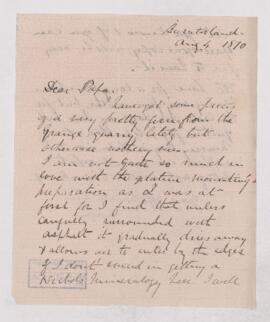 Burntisland
Aug 4 1870
Dear Papa
I have got some pieces
of very pretty from the
Grange quarry lately but
otherwise nothing new.
I am not quite so much in
love with the mounting
preparation as I was at
first for I find that unless
carefully surrounded with
asphalt it gradually dries away
& allows air to enter by the edges
If I don't succeed in getting a
Nichols Mineralogy here I will